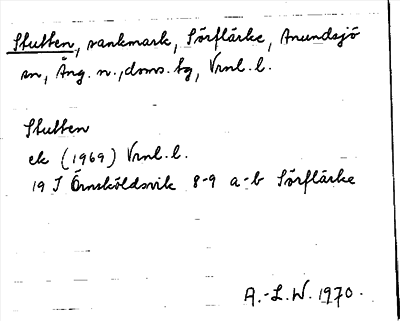 Stutten, sankmark, Sörflärke, Anundsjö
sn, Ång. n., doms. tg, Vrnl. l.
Stutten
ek (1969) Vrnl. l.
19 J Örnsköldsvik 8-9 a-b Sörflärke
A.-L.W. 1970.